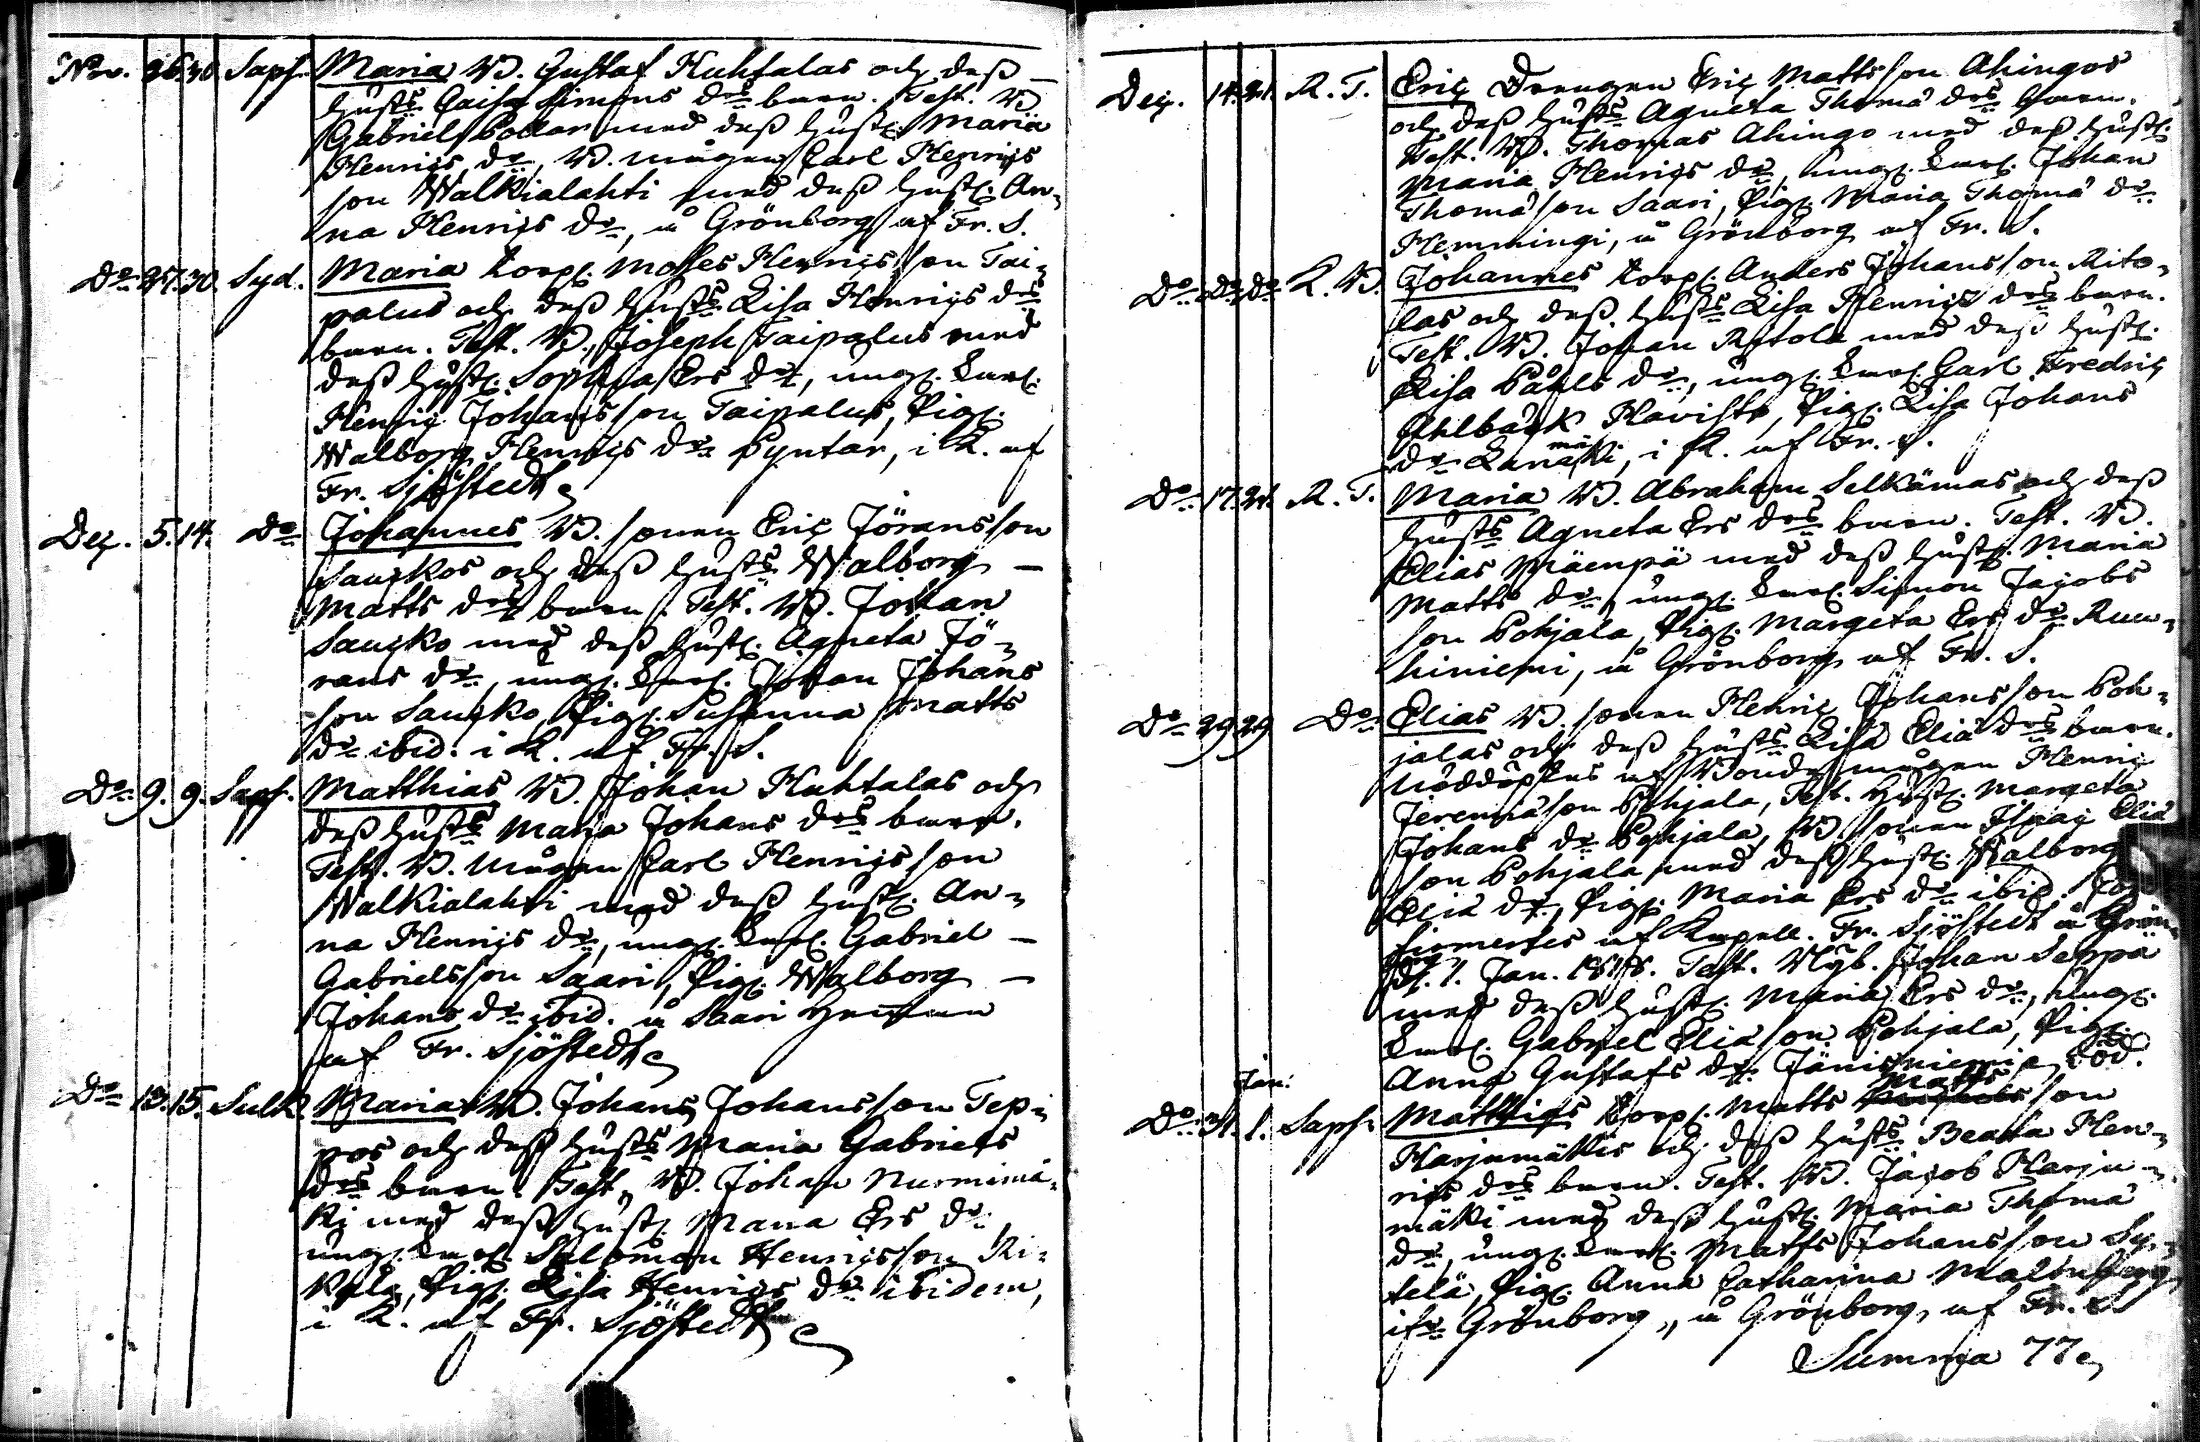 Nov. 26. 30. Sapf. Maria B. Gustaf Huhtalas och dess
hust:s Caisa Simons d:rs barn. Test. B.
Gabriel Pollari med dess hust. Maria
Henrics d:r, B. mågen Carl Henrics
son Walkialahti med dess hust. An-
na Henrics d:r, å Grönborg af Fr. S.
D:o 27. 30. Syd. Maria Torp. Moses Henrics son Tai-
palus och dess hust:s Lisa Henrics d:rs
barn. Test. B. Joseph Taipalus med
dess hust. Sophia Ers d:r, ung. Karl.
Henric Johansson Taipalus, Pig.
Walborg Henrics d:r Pyntar, i K. af
Fr. Sjöstedt
Dec. 5. 14. D:o Johannes B. sonen Eric Jöransson
Sauckos och dess hust:s Walborg
Matts d:rs barn. Test. B. Johan
Saucko med dess hust. Agneta Jö-
rans d:r, ung. Karl. Johan Johans
son Saucko, Pig. Susanna Matts
d:r ibid. i K. af Fr. S.
D:o 9. 9. Sapf. Matthias B. Johan Huhtalas och
dess hust:s Maria Johans d:rs barn.
Test. B. Mågen Carl Henrics son
Walkialahti med dess hust. An-
na Henrics d:r, ung. Karl. Gabriel
Gabrielsson Saari, Pig. Walborg
Johans d:r ibid. å Saari
af Fr. Sjöstedt
D:o 13. 15. Sulk. Maria B. Johans Johansson Tep-
pos och dess hust:s Maria Gabriels
d:rs barn. Test. B. Johan Nurmimä-
ki med dess hust. Maria Ers d:r,
ung. Karl. Salomon Henricsson Ri-
kala, Pig. Lisa Henrics d:r ibidem,
i K. af Fr. Sjöstedt
Dec. 14. 21. R. T. Eric Drengen Eric Mattsson Ahingos
och dess hust:s Agneta Thomæ d:rs barn.
Test. B. Thomas Ahingo med dess hust.
Maria Henrics d:r, ung. Karl. Johan
Thomæson Saari, Pig. Maria Thomæ d:r
Hemmingi, å Grönborg af Fr. S.
D:o D:o D:o K. B. Johannes Torp. Anders Johansson Rito-
las och dess hust:s Lisa Henrics d:rs barn.
Test. B. Johan Ritola med dess hust.
Lisa Påhls d:r, ung. Karl. Carl Fredric
Ahlbäck Havisto, Pig. Lisa Johans
d:r Lanamäki, i K. af Fr. S.
D:o 17. 21. R. T. Maria B. Abraham Selkämas och dess
hust:s Agneta Ers d:rs barn. Test. B.
Elias Mäenpä med dess hust. Maria
Matts d:r, ung. Karl. Simon Jacobs
son Pohjala, Pig. Margeta Ers d:r Ruu-
hiniemi, å Grönborg af Fr. S.
D:o 29. 29. D:o Elias B. sonen Henric Johansson Poh-
jalas och dess hust:s Lisa Eliæ d:rs barn.
Nöddöptes af Bondemågen Henric
Jeremiæson Pohjala, Test. Hust. Margeta
Johans d:r Pohjala, B. sonen Isaac Eliæ
son Pohjala med dess hust. Walborg
Eliæ d:r, Pig. Maria Ers d:r ibid. Con
firmertes af Kapell. Fr. Sjöstedt å Grön-
borg d. 1. Jan. 1818. Test. Nyb. Johan Seppä
med dess hust. Maria Ers d:r, ung.
Karl. Gabriel Eliæson Pohjala, Pig.
Anna Gustafs d:r Jäniskniemi, död.
Jan.
D:o 31. 1. Sapf. Matthias Torp. Matts Matts son
Harjumäkis och dess hust:s Beata Hen-
rics d:rs barn. Test. B. Jacob Harju-
mäki med dess hust. Maria Thomæ
d:r, ung. Karl. Matts Johansson Sy-
telä, Pig. Anna Catharina Malmberg
ifr. Grönborg, å Grönborg, af Fr. S
Summa 77